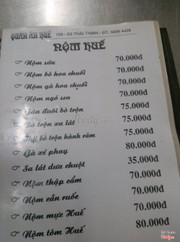 QUÁN ĂN HUẾ
NỘM HUẾ
Nộm sứa 70.000đ
Nộm bò hoa chuối 70.000đ
Nộm gà hoa chuối 70.000đ
Nộm ngó sen 70.000đ
đuôi bò trộn 75.000đ
trộn 75.000đ
bò trộn hành răm 75.000đ
Gà xé phay 80.000đ
Sa lát dưa chuột 35.000đ
Nộm thập cẩm 70.000đ
Nộm rau cần 70.000đ
Nộm mực Huế 70.000đ
Nộm tôm Huế 80.000đ